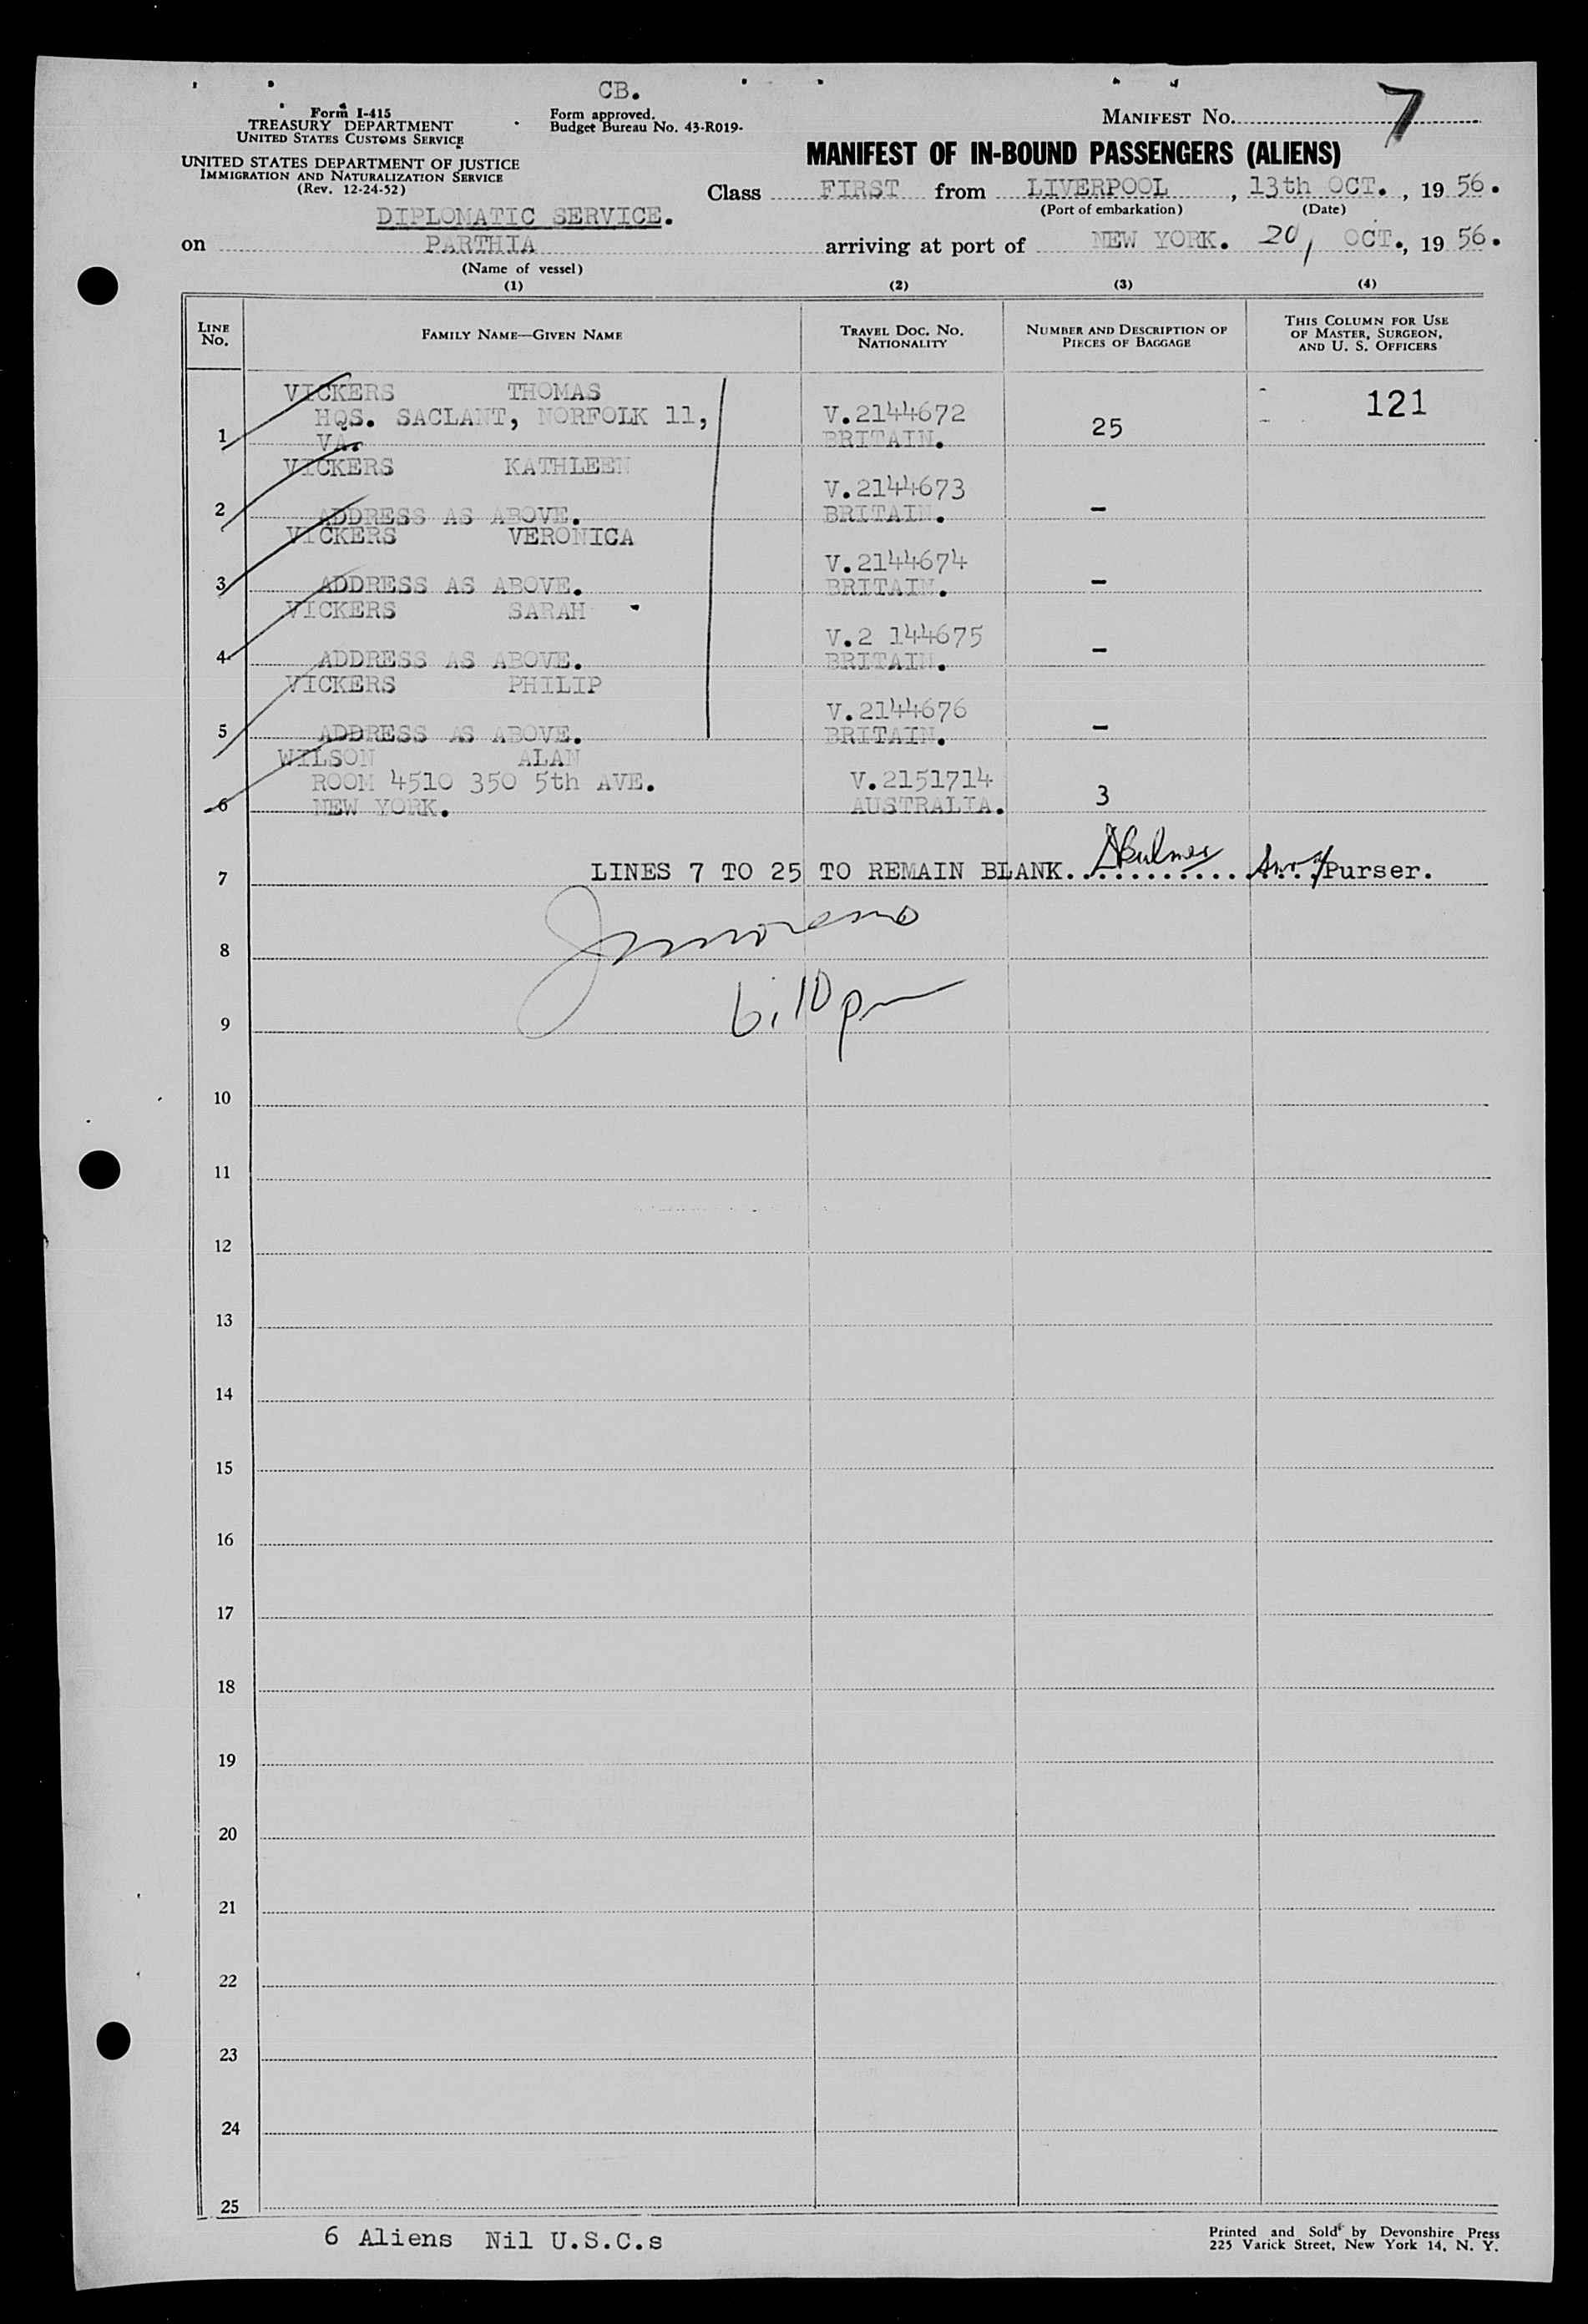 CB.
Form I-415
TREASURY DEPARTMENT
UNITED STATES CUSTOMS SERVICE
UNITED STATES DEPARTMENT OF JUSTICE
IMMIGRATION AND NATURALIZATION SERVICE
(Rev. 12-24-52)
Form approved.
Budget Bureau No. 43-R019-
MANIFEST No. 7
MANIFEST OF IN-BOUND PASSENGERS (ALIENS)
Class FIRST from LIVERPOOL, 13th OCT., 19 56.
(Port of embarkation) (Date)
DIPLOMATIC SERVICE.
on PARTHIA arriving at port of NEW YORK. 20, OCT., 19 56.
(Name of vessel)
(1) (2) (3) (4)
LINE No. FAMILY NAME—GIVEN NAME TRAVEL DOC. No. NATIONALITY NUMBER AND DESCRIPTION OF PIECES OF BAGGAGE THIS COLUMN FOR USE OF MASTER, SURGEON, AND U. S. OFFICERS
VICKERS THOMAS 121
HQS. SACLANT, NORFOLK 11, V.2144672
1 VA. BRITAIN. 25
VICKERS KATHLEEN
V.2144673
2 ADDRESS AS ABOVE. BRITAIN. -
VICKERS VERONICA
V.2144674
3 ADDRESS AS ABOVE. BRITAIN. -
VICKERS SARAH
V.2 144675
4 ADDRESS AS ABOVE. BRITAIN. -
VICKERS PHILIP
V.2144676
5 ADDRESS AS ABOVE. BRITAIN. -
WILSON ALAN
ROOM 4510 350 5th AVE. V.2151714
6 NEW YORK. AUSTRALIA. 3
7 LINES 7 TO 25 TO REMAIN BLANK. Purser.
8
6.10 pm
9
10
11
12
13
14
15
16
17
18
19
20
21
22
23
24
25
6 Aliens Nil U.S.C.s
Printed and Sold by Devonshire Press
225 Varick Street, New York 14, N. Y.